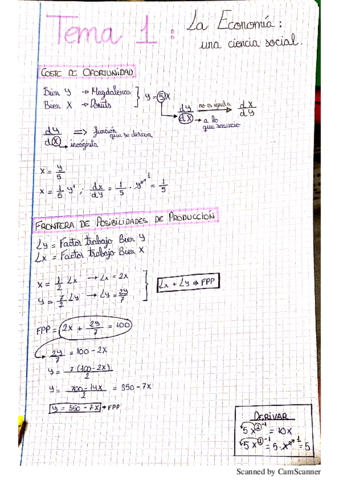 Tema 1: La Economía:
una ciencia social.
COSTE DE OPORTUNIDAD
Bien Y → Magdalenas
Bien X → Donuts
y = 5X
dy/dx → a lo que renuncio
no es igual a
dx/dy
dy/dx ⇒ función que se deriva
→ incógnita
x = y/5
x = 1/5 y¹ ; dx/dy = 1/5 · y¹⁻¹ = 1/5
FRONTERA DE POSIBILIDADES DE PRODUCCIÓN
Ly = Factor trabajo Bien Y
Lx = Factor trabajo Bien X
x = 1/2 Lx → Lx = 2x
y = 7/2 Ly → Ly = 2y/7
Lx + Ly ⇒ FPP
FPP = 2x + 2y/7 = 100
2y/7 = 100 - 2x
y = 7(100-2x)/2
y = 700-14x/2 = 350 - 7x
y = 350 - 7x → FPP
DERIVAR
5x² = 10x
5x¹ = 5·x¹⁻¹ = 5
Scanned by CamScanner